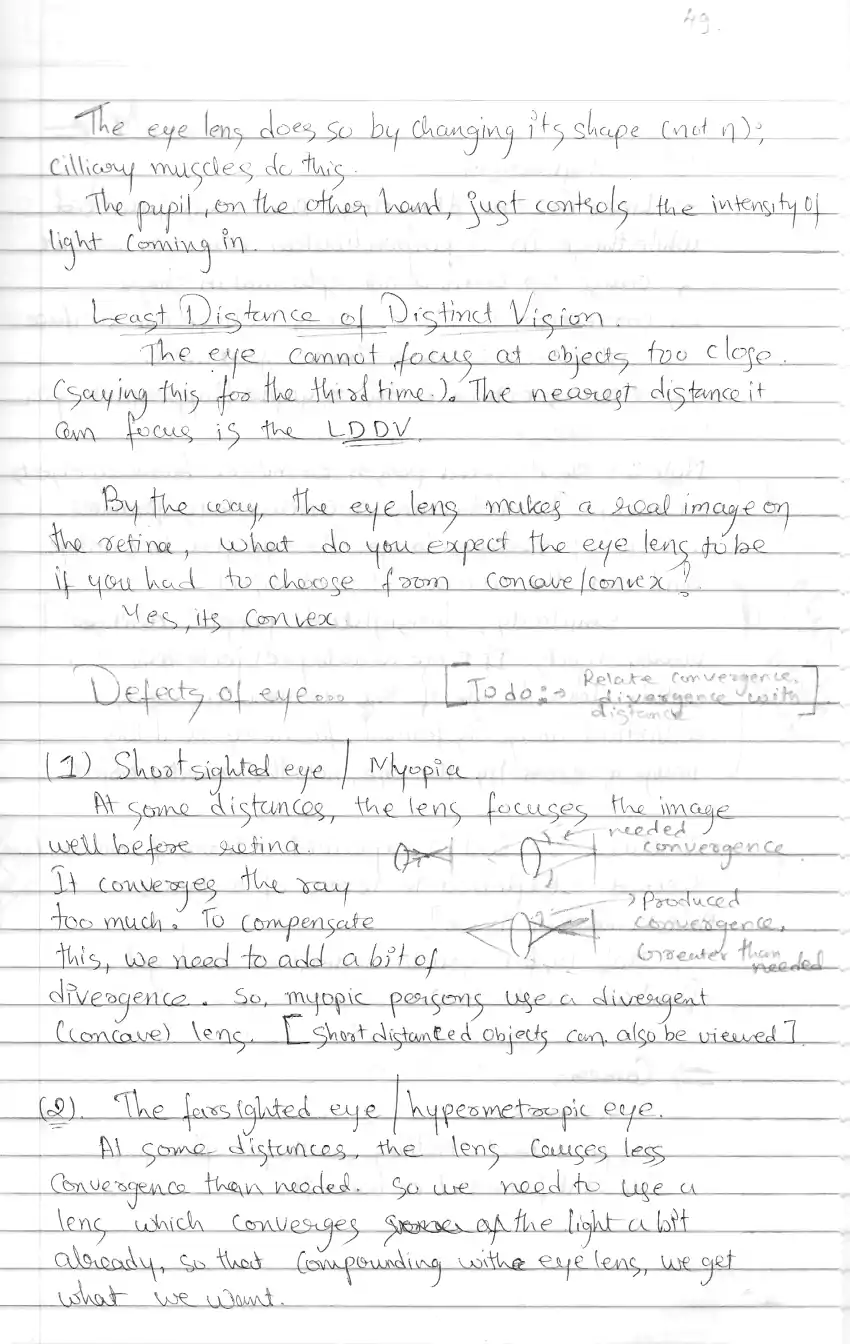 49.
The eye lens does so by changing its shape (not η);
cilliary muscles do this.
The pupil, on the other hand, just controls the intensity of
light coming in.
Least Distance of Distinct Vision.
The eye cannot focus at objects too close.
(saying this for the third time.). The nearest distance it
can focus is the LDDV.
By the way, the eye lens makes a real image on
the retina, what do you expect the eye lens to be
if you had to choose from concave/convex?
Yes, its convex
Defects of eye... [To do:→ Relate convergence,
divergence with
distance]
(1) Shortsighted eye / Myopia
At some distances, the lens focuses the image
well before retina.
needed
convergence
It converges the ray
too much. To compensate
this, we need to add a bit of
Produced
convergence,
Greater than
needed
divergence. So, myopic persons use a divergent
(concave) lens. [Short distanced objects can also be viewed].
(2). The farsighted eye / hypermetropic eye.
At some distances, the lens causes less
convergence than needed. So we need to use a
lens which converges of the light a bit
already, so that compounding withe eye lens, we get
what we want.